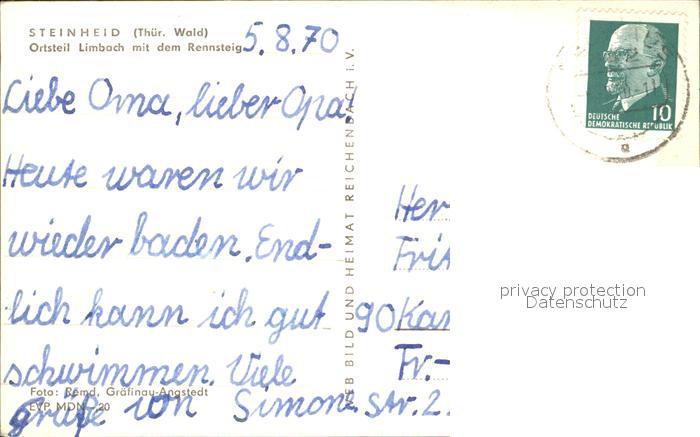 STEINHEID (Thür. Wald)
Ortsteil Limbach mit dem Rennsteig
5.8.70
Liebe Oma, lieber Opa!
Heute waren wir
wieder baden. End-
lich kann ich gut
schwimmen. Viele
Grüße von Simone.
Foto: Remd, Gräfinau-Angstedt
EVP MDN -,20
VEB BILD UND HEIMAT REICHENBACH i. V.
10
DEUTSCHE
DEMOKRATISCHE REPUBLIK
a
Her
Frit
90 Kar
Fr.-
Str. 2.
privacy protection
Datenschutz